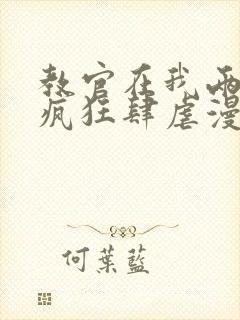 教官在我兩
瘋狂肆虐漫
何葉藍